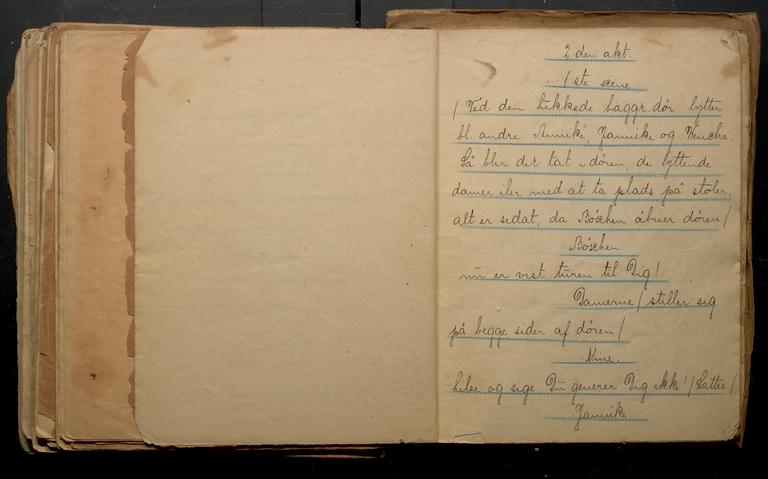 2 den akt.
1 ste scene
/ Ved den lukkede baggr. dør lytter
bl. andre Annike, Jannike og Wenche.
Så blir der tat i døren, de lyttende
damer iler med at ta plads på stoler,
alt er sedat, da Böschen åbner døren /
Böschen
nu er vist turen til Dig!
Damerne / stiller sig
på begge sider af døren /
Mine.
hilse og sige Du generer Dig ikke! / Latter /
Jannike.